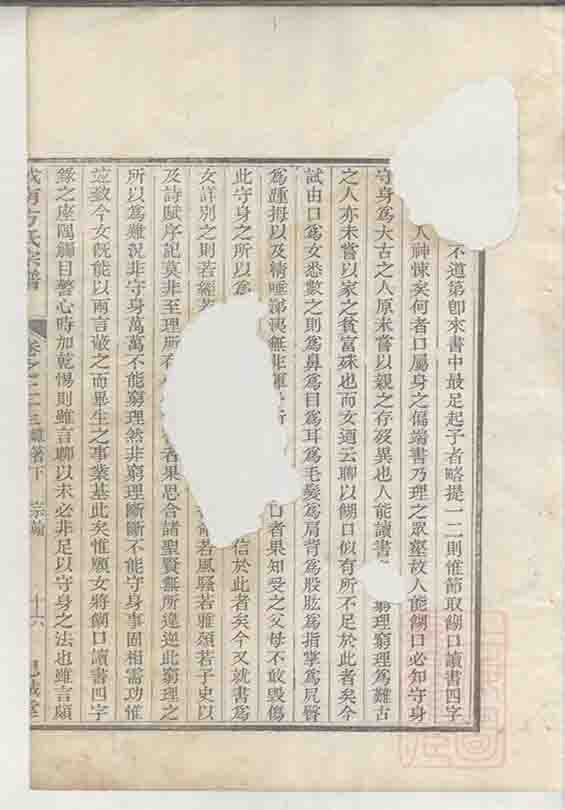 不道第卽來書中最足起予者略提一二則惟節取餬口讀書四字
人神悚矣何者口屬身之偏端書乃理之眾壑故人能餬口必知守身
守身爲大古之人原未嘗以親之存歿異也人能讀書 窮理窮理爲難古
之人亦未嘗以家之貧富殊也而女迺云聊以餬口似有所不足於此者矣今
試由口爲女悉數之則爲鼻爲目爲耳爲毛髮爲肩背爲股肱爲指掌爲尻臀
爲踵拇以及精唾涕洟無非 口者果知受之父母不敢毀傷
此守身之所以爲 信於此者矣今又就書爲
女詳別之則若經若 若風騷若雅頌若子史以
及詩賦序記莫非至理所 者果思合諸聖賢無所違逆此窮理之
所以爲難況非守身萬萬不能窮理然非窮理斷斷不能守身事固相需功惟
並致今女旣能以兩言蔽之而畢生之事業基此矣惟願女將餬口讀書四字
錄之座隅觸目警心時加乾惕則雖言聊以未必非足以守身之法也雖言頗
方氏宗譜 卷之二十三雜著下 宗 十六